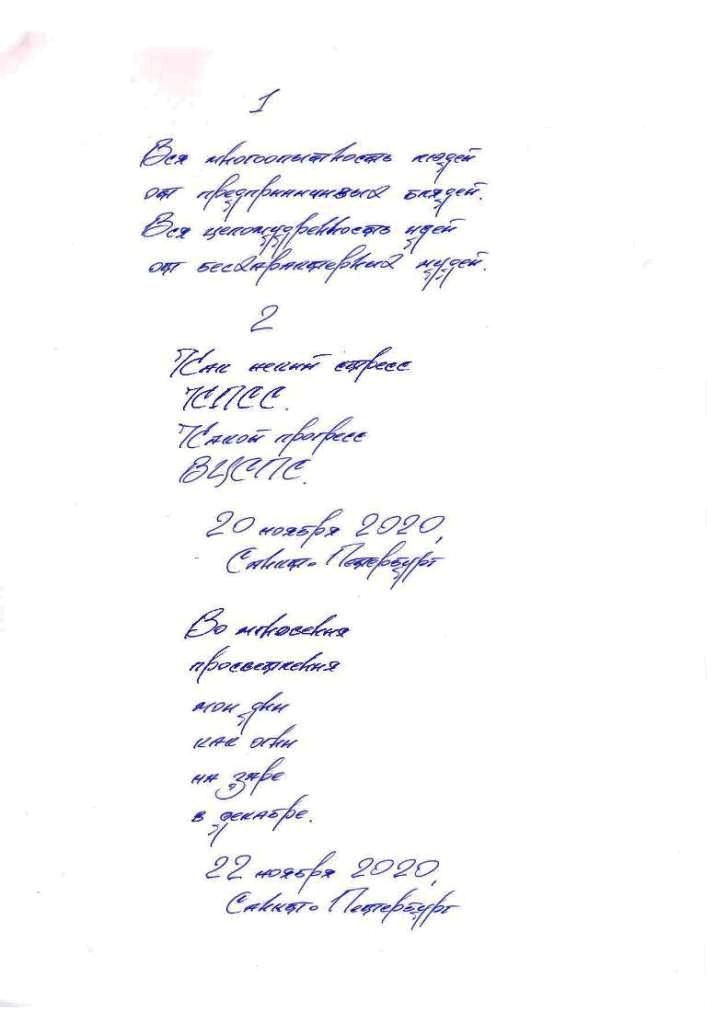 1
Вся многоопытность людей
от предприимчивых блядей.
Вся целомудренность идей
от бесхарактерных мудей.
2
Как некий стресс
КПСС.
Какой прогресс
ВЦСПС.
20 ноября 2020,
Санкт-Петербург
Во мгновения
просветления
мои дни
как огни
на заре
в декабре.
22 ноября 2020,
Санкт-Петербург